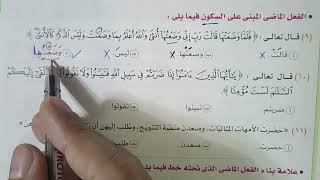 الفعل الماضى المبنى على السكون فيما يلى :
(٩) قال تعالى : ﴿ فَلَمَّا وَضَعَتْهَا قَالَتْ رَبِّ إِنِّى وَضَعْتُهَا أُنثَىٰ وَاللَّهُ أَعْلَمُ بِمَا وَضَعَتْ وَلَيْسَ الذَّكَرُ كَالْأُنثَىٰ ﴾
قالت. X وضعتها. X ليس. X وضعتها
(١٠) قال تعالى : ﴿ يَا أَيُّهَا الَّذِينَ آمَنُوا إِذَا ضَرَبْتُمْ فِي سَبِيلِ اللَّهِ فَتَبَيَّنُوا وَلَا تَقُولُوا لِمَنْ أَلْقَىٰ إِلَيْكُمُ
السَّلَامَ لَسْتَ مُؤْمِنًا ﴾
ضربتم تبينوا تقولوا
(١١) حضرت الأمهات المثاليات، وصعدن منصة التتويج، وطلب إليهن أن
علامة بناء الفعل الماضى الذى تحته خط فيما يلى